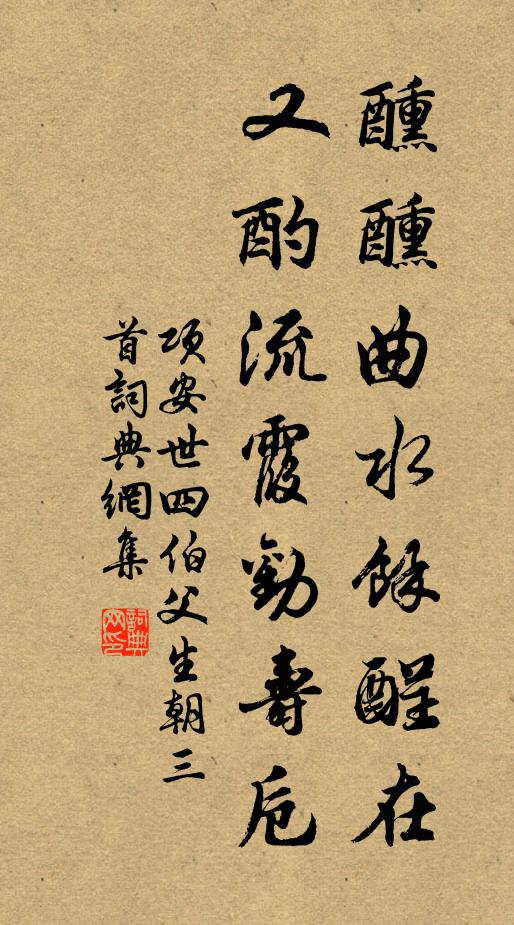 醺醺曲水餘酲在
又酌流霞勸壽卮
項安世四伯父生朝三
首詞典網集
詞典
网印